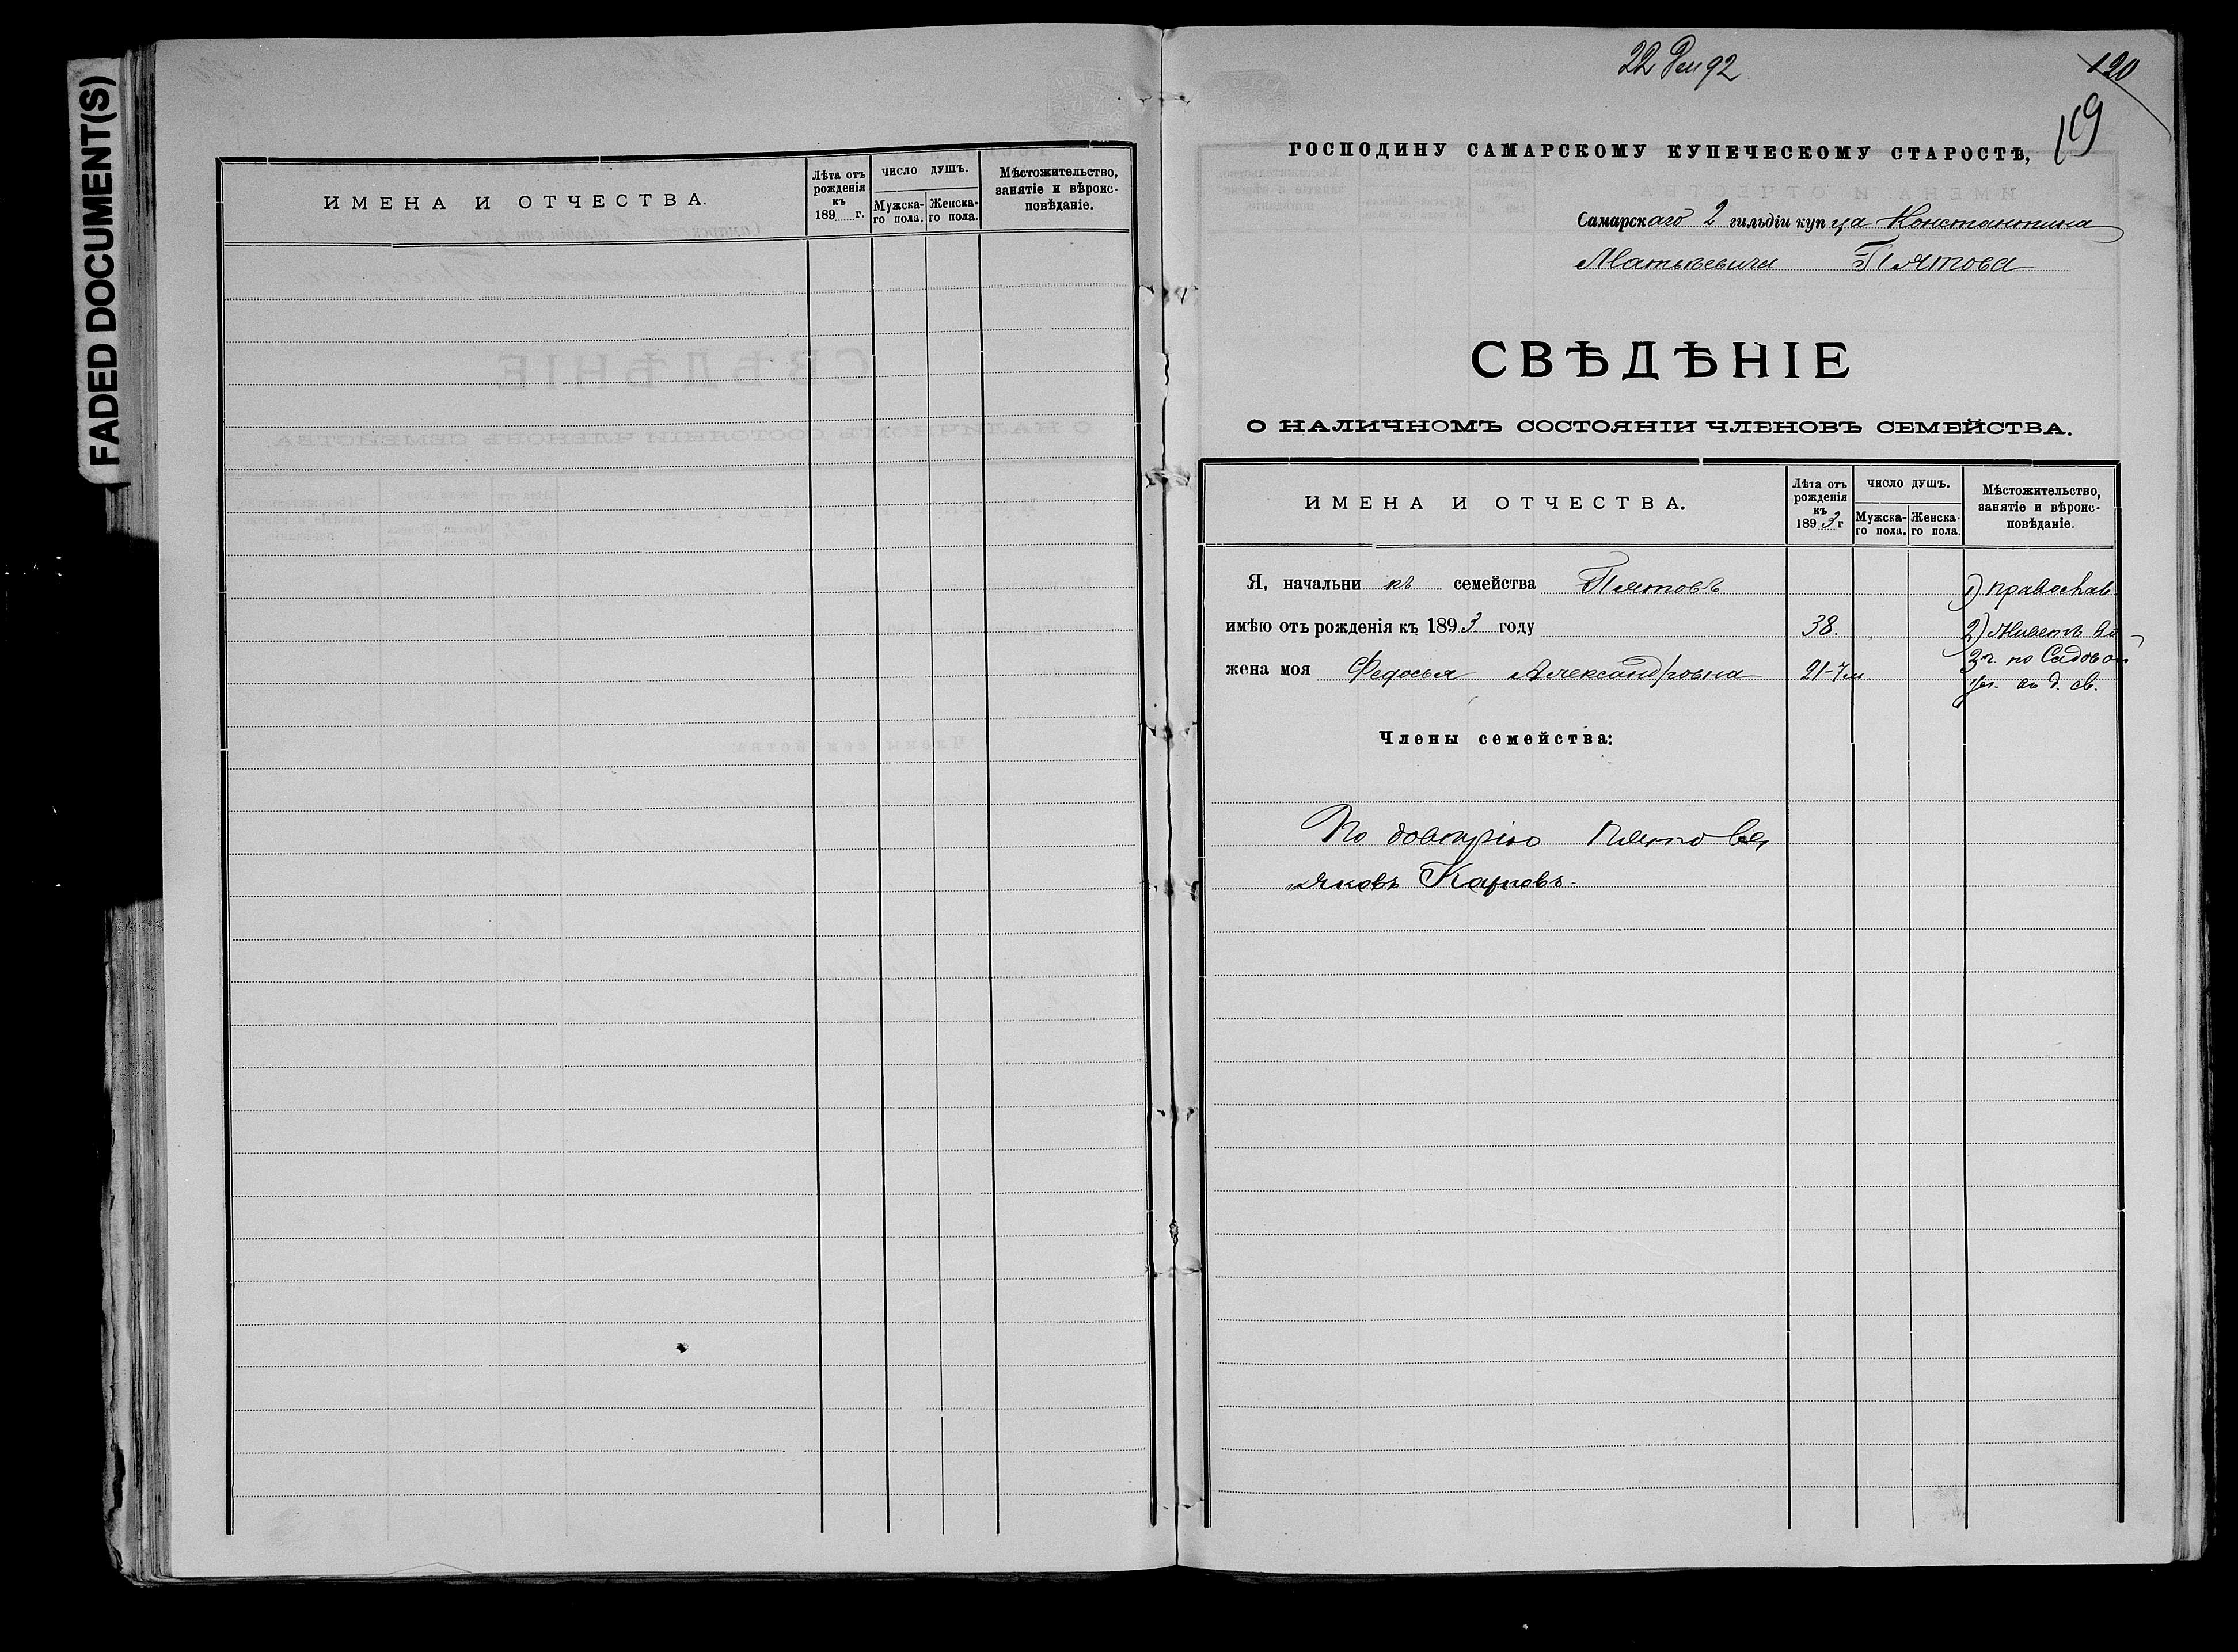 FADED DOCUMENT(S)
ИМЕНА И ОТЧЕСТВА.
Лѣта отъ рожденія къ 189 г.
ЧИСЛО ДУШЪ.
Мужска-го пола.
Женска-го пола.
Мѣстожительство, занятіе и вѣроис-повѣданіе.
22 Дек 92
120
119
ГОСПОДИНУ САМАРСКОМУ КУПЕЧЕСКОМУ СТАРОСТѢ,
Самарскаго 2 гильдіи купца Константина
Матвѣевича Пятова
СВѢДѢНІЕ
О НАЛИЧНОМЪ СОСТОЯНІИ ЧЛЕНОВЪ СЕМЕЙСТВА.
ИМЕНА И ОТЧЕСТВА.
Лѣта отъ рожденія къ 1893 г
ЧИСЛО ДУШЪ.
Мужска-го пола.
Женска-го пола.
Мѣстожительство, занятіе и вѣроис-повѣданіе.
Я, начальникъ семейства Пятовъ
1) православ
имѣю отъ рожденія къ 1893 году 38.
2) Живетъ во
3 ч. по Садовой
жена моя Федосья Александровна 21-7м
ул. въ д. св.
Члены семейства:
По довѣрію Пятова
Яковъ Карповъ.